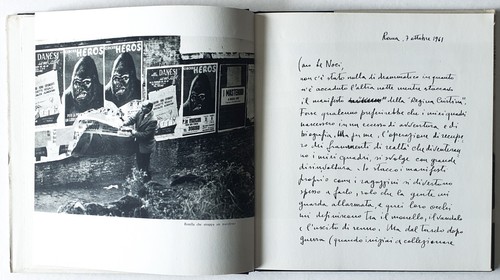 DANESI
HÉROS
HÉROS
DANESI
HÉROS
HÉROS
Rotella che strappa un manifesto
Roma, 7 ottobre 1961
Caro Le Noci,
non c'è stato nulla di drammatico in quanto
m'è accaduto l'altra notte mentre staccavo
il manifesto della "Regina Cristina".
Forse qualcuno preferirebbe che i miei quadri
nascessero in un eccesso di avventura e di
biografia. Ma per me, l'operazione di recupe-
ro dei frammenti di realtà che diventeran-
no i miei quadri, si svolge con grande
disinvoltura. Io stacco i manifesti
proprio come i ragazzini si divertono
spesso a farlo, solo che la gente mi
guarda allarmata, e quei loro occhi
mi definiscono tra il monello, il vandalo
e l'uscito di senno. Ma dal tardo dopo-
guerra (quando iniziai a collezionare